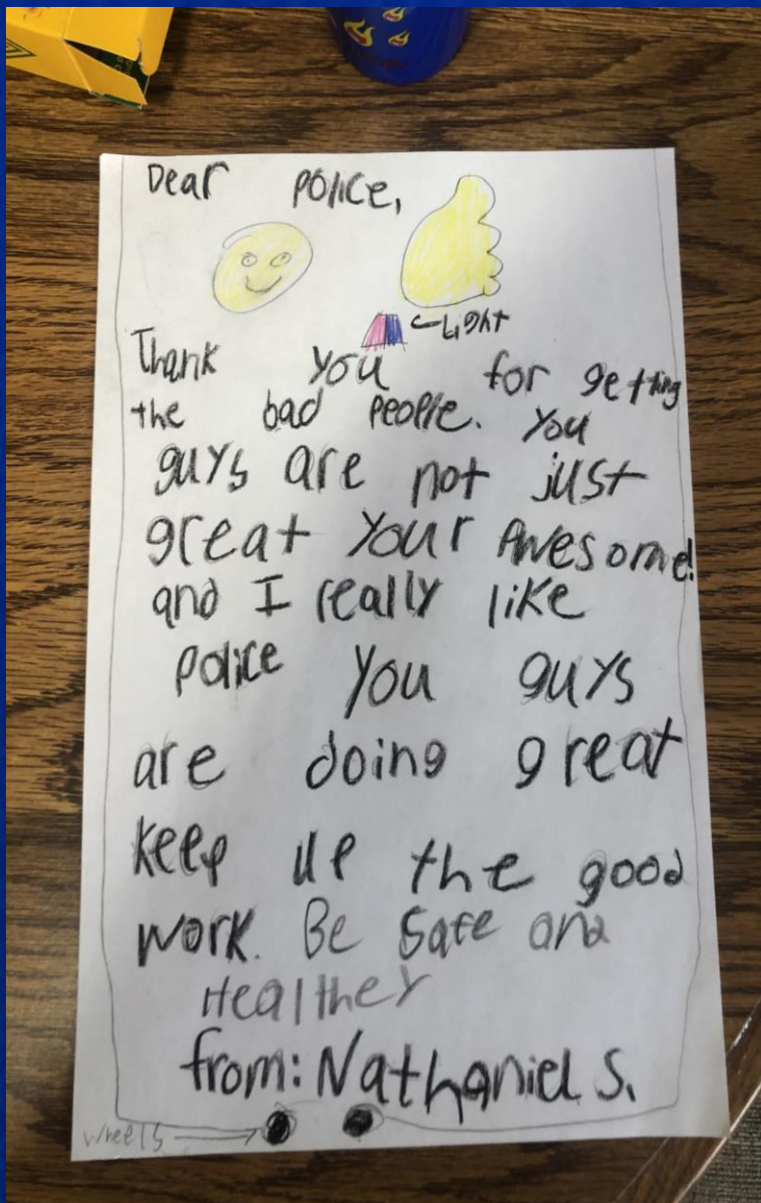 Dear Police,
Light
Thank you for getting
the bad people. You
guys are not just
great your Awesome!
and I really like
police you guys
are doing great
keep up the good
work. Be Safe and
Healthey
from: Nathaniel S.
wheels